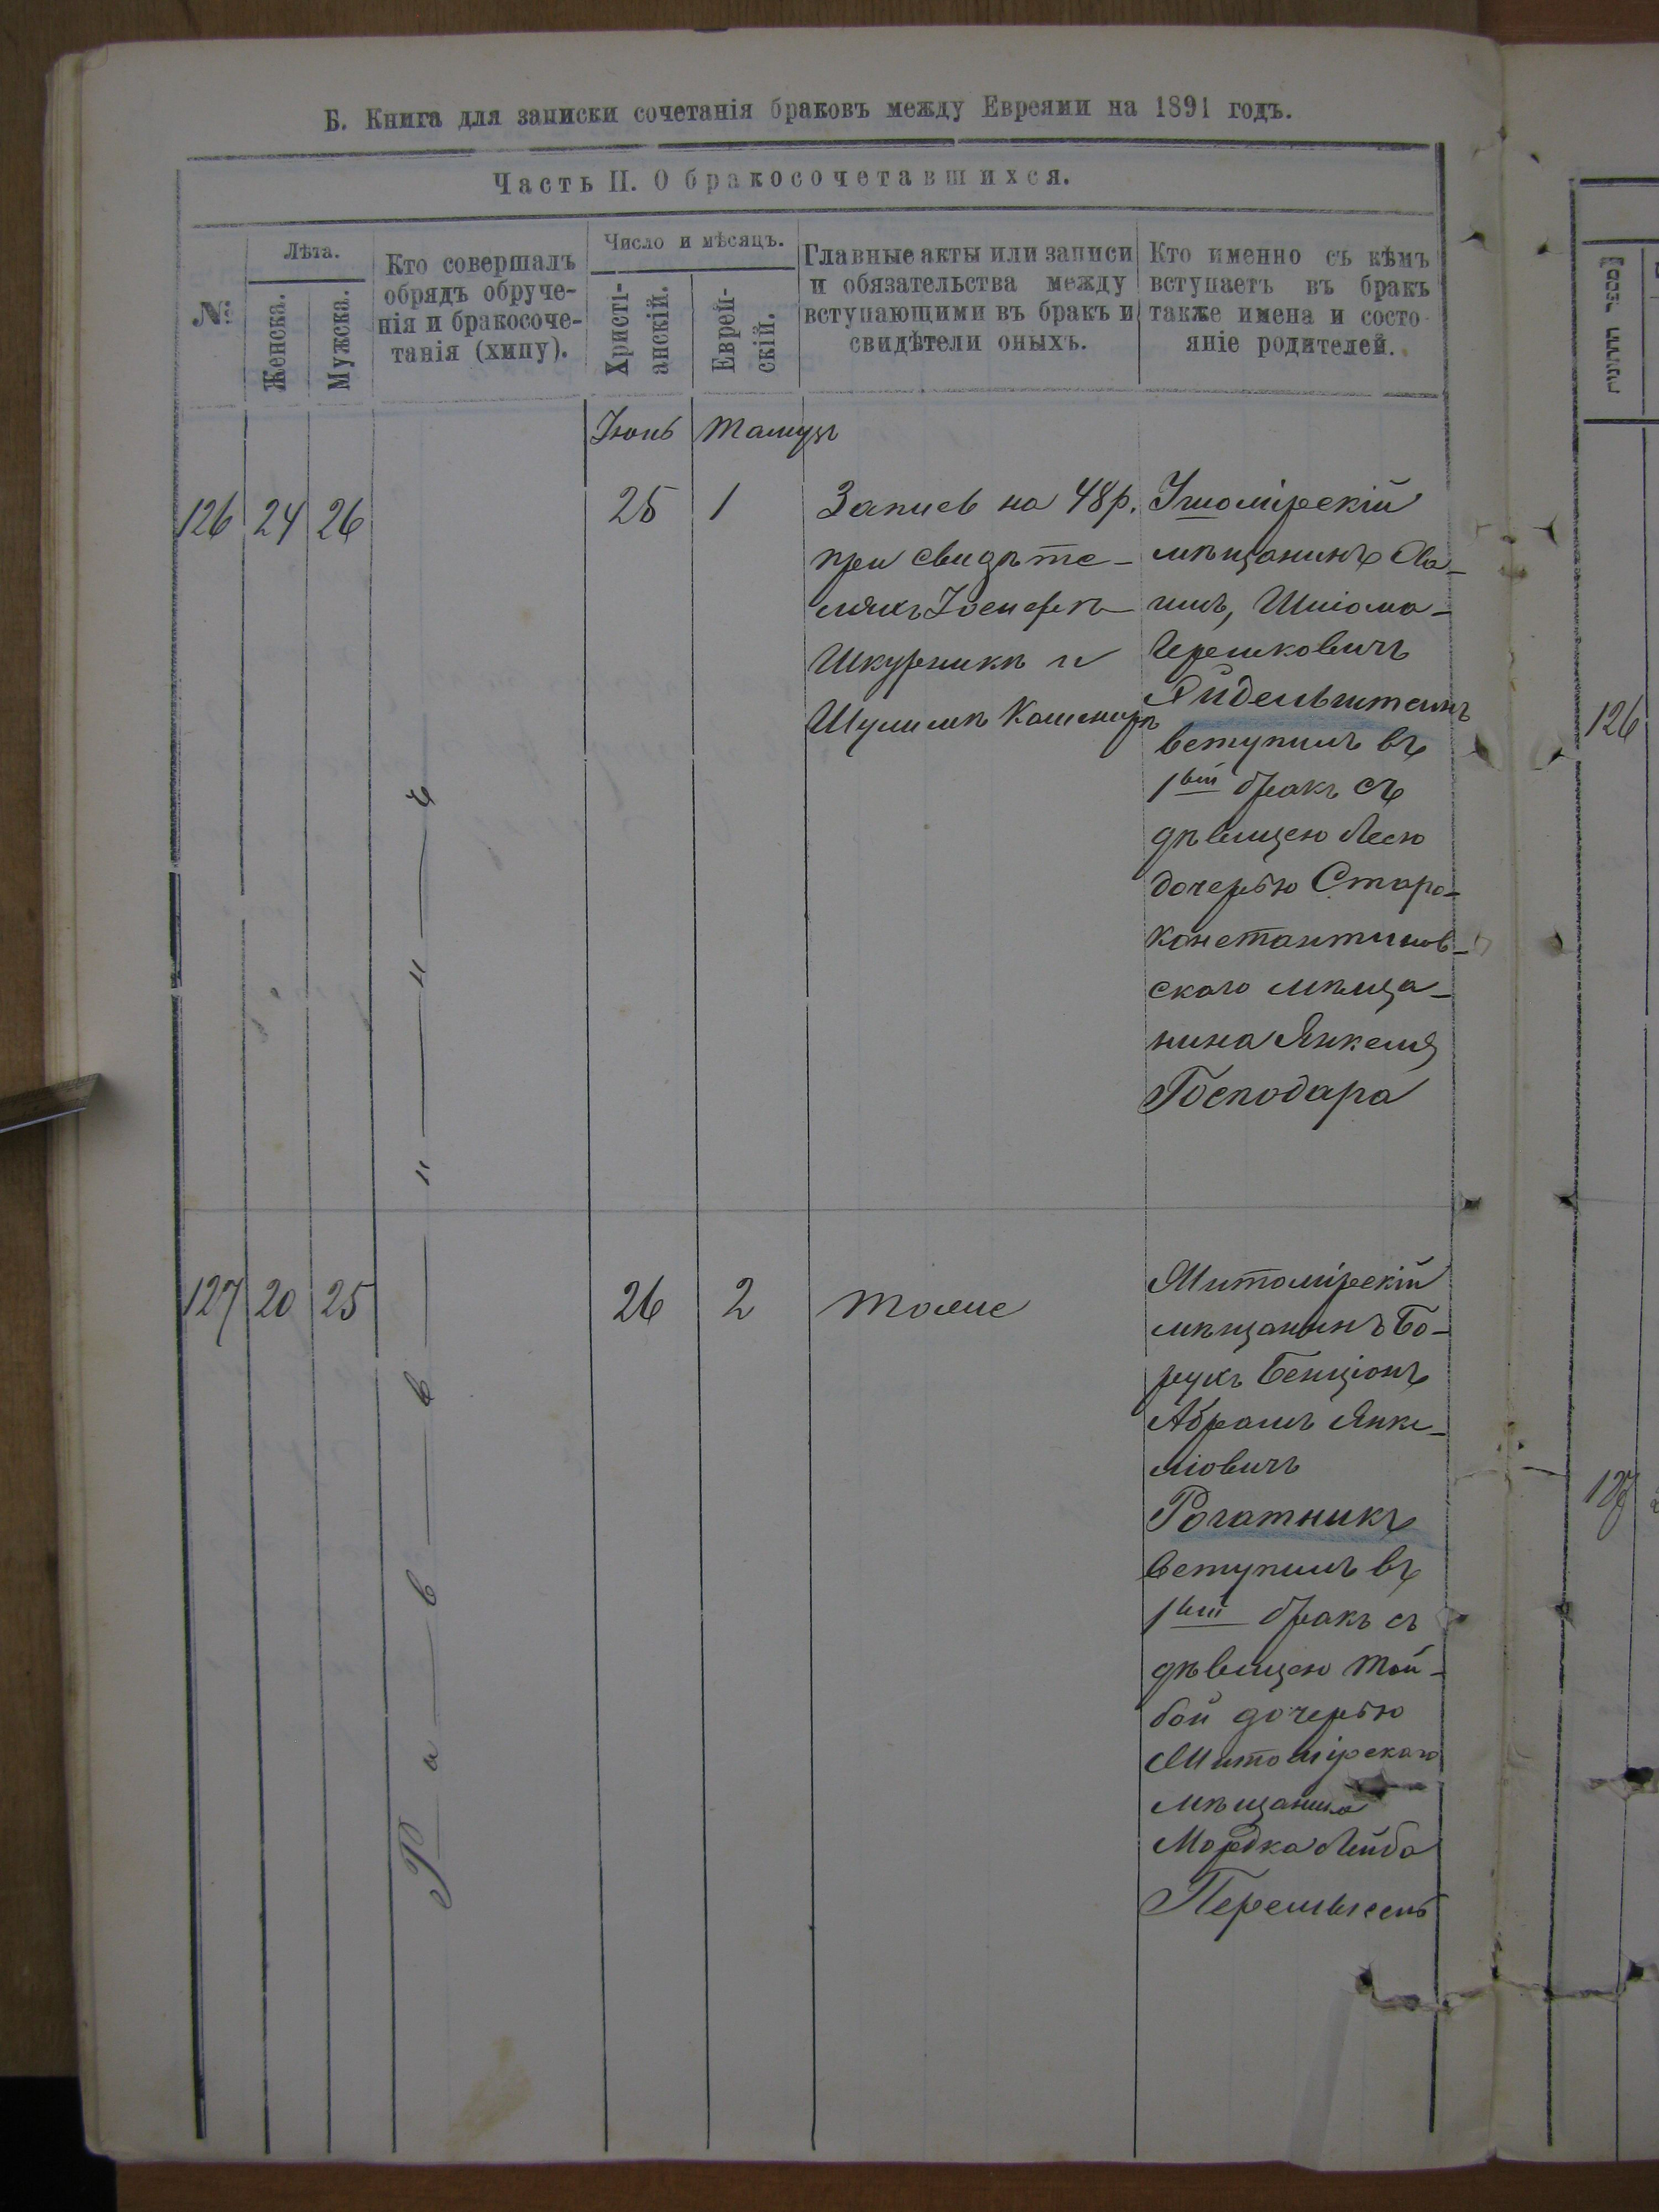 Б. Книга для записки сочетанія браковъ между Евреями на 1891 годъ.
Часть II. О бракосочетавшихся.
№
Лѣта.
Женска.
Мужска.
Кто совершалъ
обрядъ обруче-
нія и бракосоче-
танія (хипу).
Число и мѣсяцъ.
Христі-
анскій.
Еврей-
скій.
Главные акты или записи
и обязательства между
вступающими въ бракъ и
свидѣтели оныхъ.
Кто именно съ кѣмъ
вступаетъ въ бракъ
также имена и состо-
яніе родителей.
Іюнь Тамузъ
126 24 26
25 1
Запись на 48 р.
при свидѣте-
ляхъ Іосифѣ
Шкурникѣ и
Шулимѣ
Ушомірскій
мѣщанинъ
Шліома-
Гершковичъ
вступилъ въ
1вый бракъ съ
дѣвицею Лесю
дочерью Старо-
константинов-
скаго мѣща-
нина Янкеля
Господара
127 20 25
26 2
Тоже
Житомірскій
мѣщанинъ Бо-
рухъ Бенціонъ
Абрамъ Янке-
ліовичъ
Рогатникъ
вступилъ въ
1вый бракъ съ
дѣвицею Той-
бой дочерью
Житомірскаго
мѣщанина
Мордка Лейба
Перельмань
Раввинъ
ч
מספר החתונות
126
127